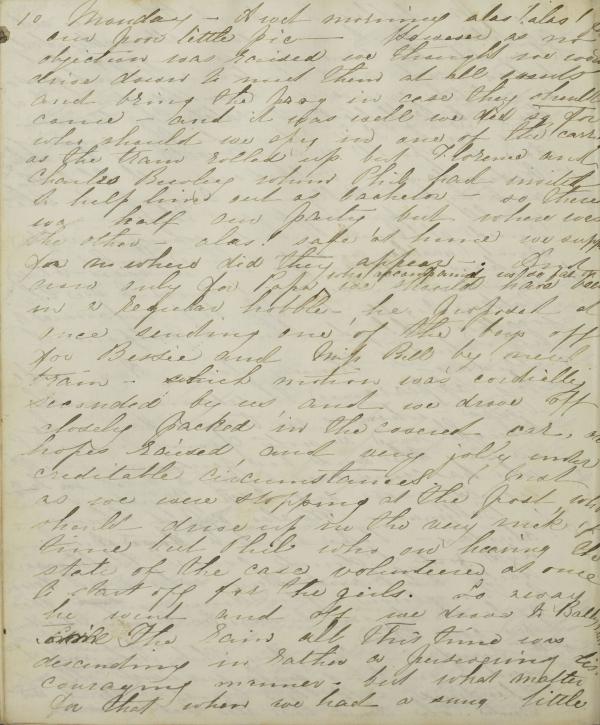 10 Monday - A wet morning alas! alas!
our poor little pic - however as no
objection was raised we thought we wou
drive down to meet them at all events
and bring the prog in case they should
come - and it was well we did so for
who should we spy in one of the carr
as the train rolled up but Florence and
Charles Bewley whom Phil had invited
to help him out as bachelor - so there
was half our party but where was
the other - alas! safe at home we supp
for nowhere did they appear -
now only for Papa who accompanied us so far we should have been
in a regular hobble - he proposed at
once sending one of the boys off
for Bessie and Miss Bell by next
train - which motion was cordially
seconded by us and we drove off
closely packed in the covered car, our
hopes raised, and very jolly under
creditable circumstances! Just
as we were stopping at the post, who
should drive up in the very nick of
time but Phil who on hearing the
state of the case volunteered at once
to start off for the girls. So away
he went and off we drove to Bally
The rain all this time was
descending in rather a persevering dis-
couraging manner - but what matter
for that when we had a snug little